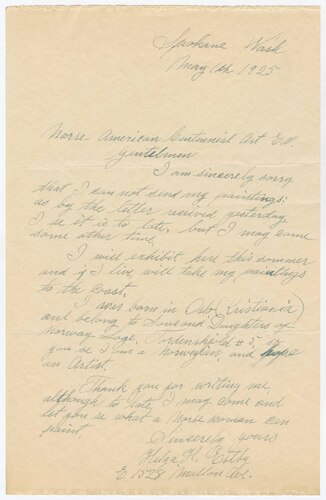 Spokane Wash
May 1th 1925
Norse-American Centennial Art Ex.
gentelmen
I am sincerely sorry
that I can not send my paintings;
as by the letter received yesterday
I se it is to late. but I may come
some other time.
I will exhibit here this sommer
and if I live, will take my paintings
to the Coast.
I was born in Oslo (Kristiania)
and belong to Sons and Daughters of
Norway Loge, Tordenskjold # 5 so
you se I am a Norwegian, and
an Artist.
Thank you for writing me
although to late, I may come and
let you se what a Norse woman can
paint.
Sincerely yours
Helga H. Estby
E 1528 Mallon Ave.